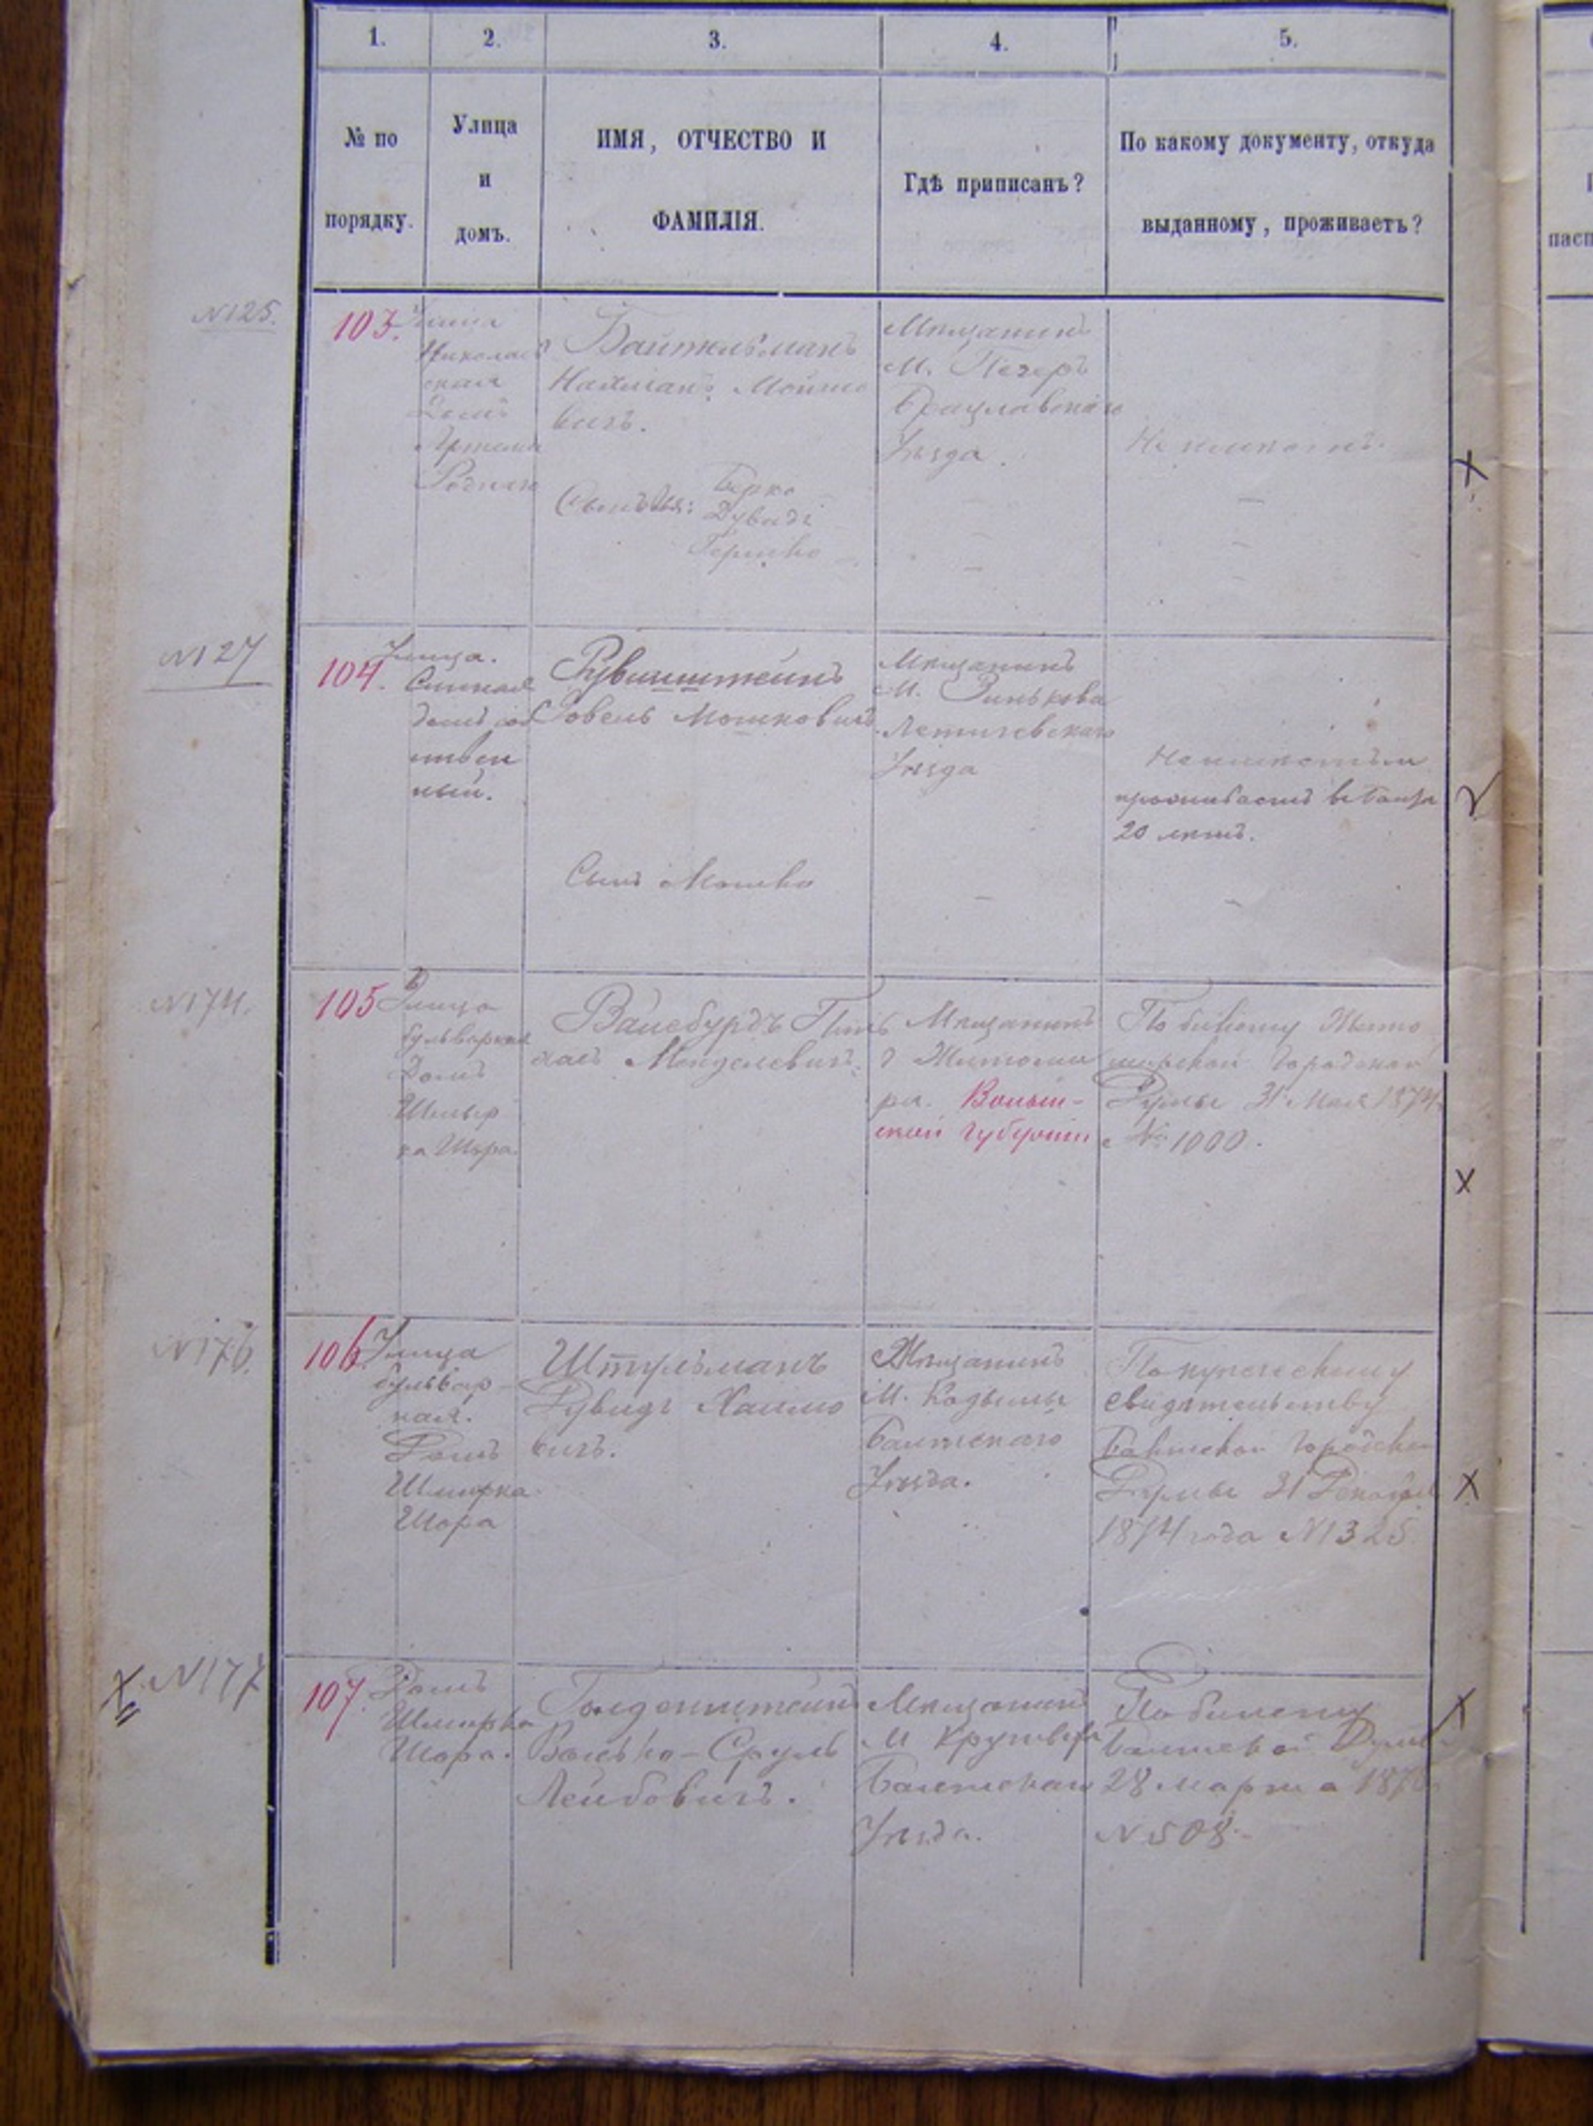 1. 2. 3. 4. 5.
№ по порядку.
Улица и домъ.
ИМЯ, ОТЧЕСТВО И
ФАМИЛІЯ.
Гдѣ приписанъ?
По какому документу, откуда
выданному, проживаетъ?
пасп
N125.
103.
Улица
Николаев
ская
Домъ
Артема
Байтельманъ
Нахманъ Мошко
вичъ.
Сыновья: Берко
Дувидъ
Гершко
Мѣщанинъ
М. Печеръ
Брацлавскаго
Уѣзда.
N127
104.
Улица.
домъ соб
ствен
ный.
Рувинштейнъ
Іовель Мошковичъ
Сынъ Мошко
Мѣщанинъ
М. Зинькова
Летичевскаго
Уѣзда
проживаетъ въ Балтѣ
20 лѣтъ.
N174.
105
Улица
бульварная
Домъ
Шмер
ка Шора.
Вайсбурдъ Пин
хасъ Менделевичъ
Мѣщанинъ
г Житоми
ра. Волын-
ской губерніи
По билету Жито
мирской Городской
Думы 31 Мая 1874
№ 1000.
N176.
106
Улица
бульвар-
ная.
Домъ
Шмерка
Шора
Штульманъ
Дувидъ Хаимо
вичъ.
Мѣщанинъ
М. Кодымы
Балтскаго
Уѣзда.
По купеческому
свидѣтельству
Балтской Городской
Думы 31 Декабря
1874 года N1325
N177
107.
Домъ
Шмерка
Шора.
Голденштейнъ
Волько-Сруль
Лейбовичъ.
Мѣщанинъ
М
Балтскаго
Уѣзда.
По билету
Балтской Думы
28 марта
N 508